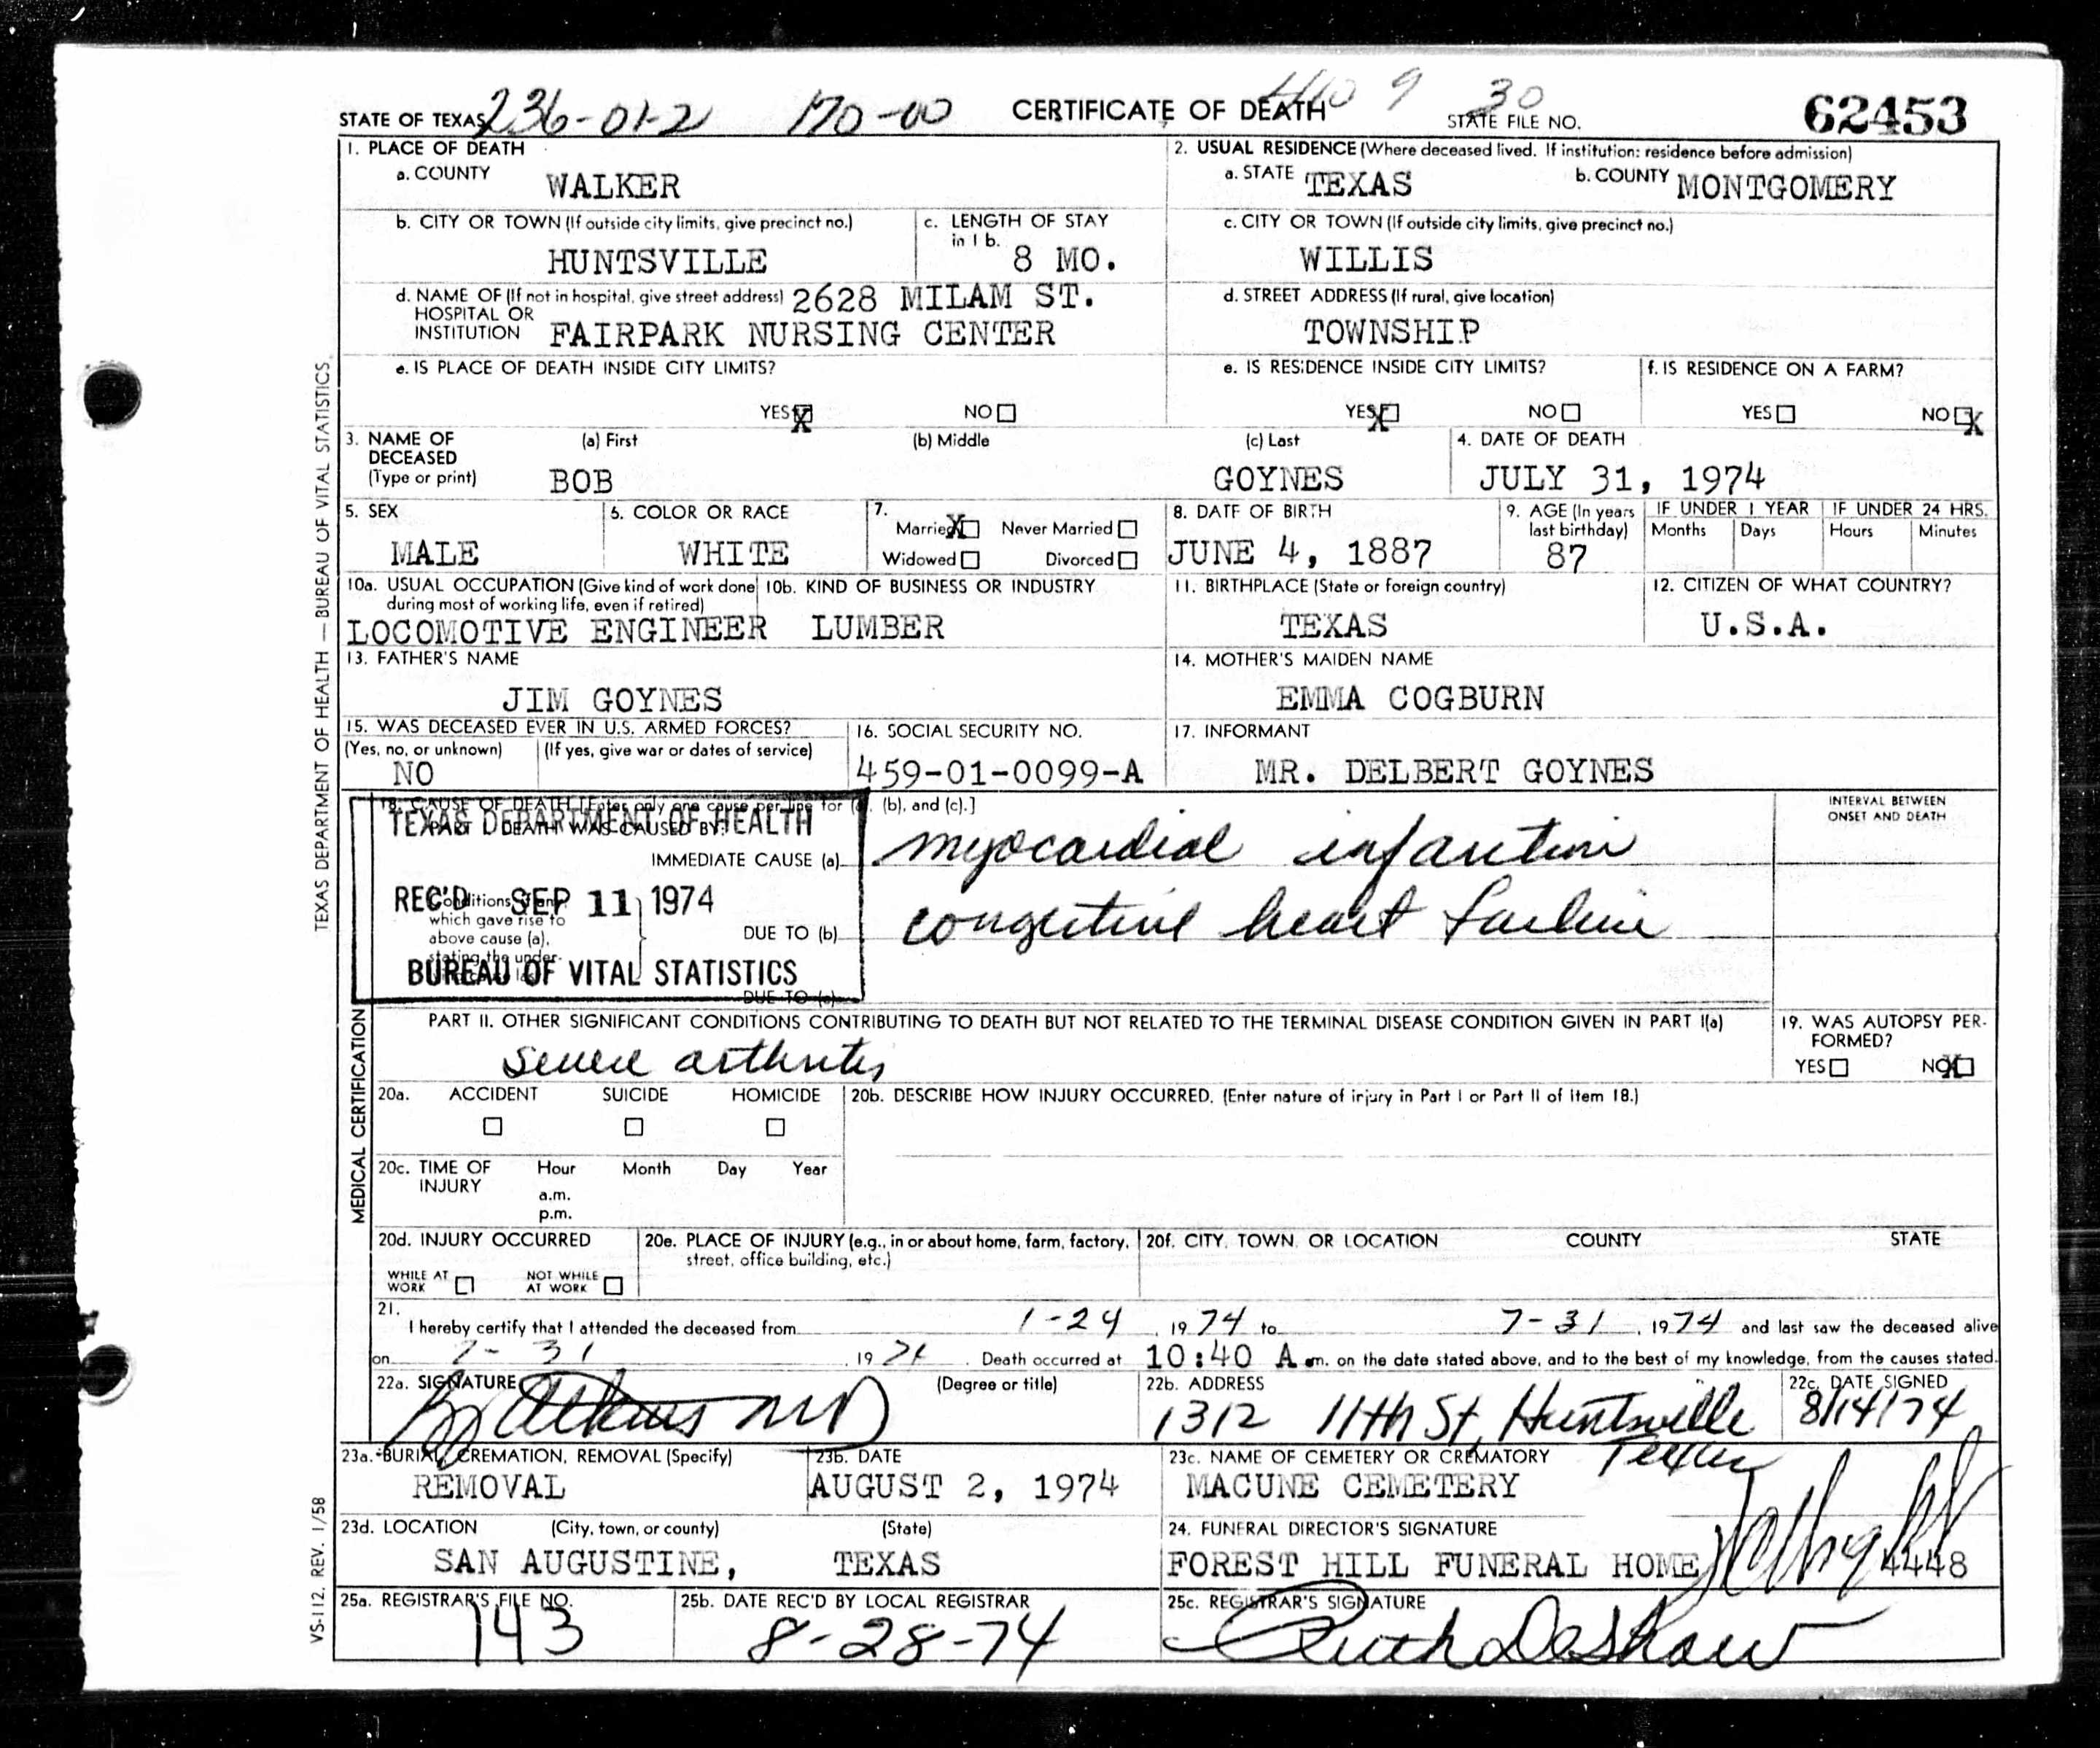 STATE OF TEXAS 236-01-2 170-00 CERTIFICATE OF DEATH 410 9 30 STATE FILE NO. 62453
1. PLACE OF DEATH
a. COUNTY WALKER
2. USUAL RESIDENCE (Where deceased lived. If institution: residence before admission)
a. STATE TEXAS b. COUNTY MONTGOMERY
b. CITY OR TOWN (If outside city limits, give precinct no.)
HUNTSVILLE
c. LENGTH OF STAY
in 1 b. 8 MO.
c. CITY OR TOWN (If outside city limits, give precinct no.)
WILLIS
d. NAME OF (If not in hospital, give street address) 2628 MILAM ST.
HOSPITAL OR
INSTITUTION FAIRPARK NURSING CENTER
d. STREET ADDRESS (If rural, give location)
TOWNSHIP
e. IS PLACE OF DEATH INSIDE CITY LIMITS?
YES X NO
e. IS RESIDENCE INSIDE CITY LIMITS?
YES X NO
f. IS RESIDENCE ON A FARM?
YES NO X
3. NAME OF
DECEASED
(Type or print)
(a) First (b) Middle (c) Last
BOB GOYNES
4. DATE OF DEATH
JULY 31, 1974
5. SEX
MALE
6. COLOR OR RACE
WHITE
7.
Married X Never Married
Widowed Divorced
8. DATE OF BIRTH
JUNE 4, 1887
9. AGE (In years
last birthday)
87
IF UNDER 1 YEAR IF UNDER 24 HRS.
Months Days Hours Minutes
10a. USUAL OCCUPATION (Give kind of work done
during most of working life, even if retired)
LOCOMOTIVE ENGINEER
10b. KIND OF BUSINESS OR INDUSTRY
LUMBER
11. BIRTHPLACE (State or foreign country)
TEXAS
12. CITIZEN OF WHAT COUNTRY?
U.S.A.
13. FATHER'S NAME
JIM GOYNES
14. MOTHER'S MAIDEN NAME
EMMA COGBURN
15. WAS DECEASED EVER IN U.S. ARMED FORCES?
(Yes, no, or unknown) (If yes, give war or dates of service)
NO
16. SOCIAL SECURITY NO.
459-01-0099-A
17. INFORMANT
MR. DELBERT GOYNES
18. CAUSE OF DEATH [Enter only one cause per line for (a), (b), and (c).]
PART I. DEATH WAS CAUSED BY:
IMMEDIATE CAUSE (a) myocardial infarction
Conditions, if any,
which gave rise to
above cause (a),
stating the under-
DUE TO (b) congestive heart failure
DUE TO (c)
INTERVAL BETWEEN
ONSET AND DEATH
TEXAS DEPARTMENT OF HEALTH
REC'D SEP 11 1974
BUREAU OF VITAL STATISTICS
PART II. OTHER SIGNIFICANT CONDITIONS CONTRIBUTING TO DEATH BUT NOT RELATED TO THE TERMINAL DISEASE CONDITION GIVEN IN PART I(a)
severe arthritis
19. WAS AUTOPSY PER-
FORMED?
YES NO X
20a. ACCIDENT SUICIDE HOMICIDE
20b. DESCRIBE HOW INJURY OCCURRED. (Enter nature of injury in Part I or Part II of Item 18.)
20c. TIME OF
INJURY
Hour Month Day Year
a.m.
p.m.
20d. INJURY OCCURRED
WHILE AT
WORK
NOT WHILE
AT WORK
20e. PLACE OF INJURY (e.g., in or about home, farm, factory,
street, office building, etc.)
20f. CITY, TOWN, OR LOCATION COUNTY STATE
21.
I hereby certify that I attended the deceased from 1-24, 1974 to 7-31, 1974 and last saw the deceased alive
on 7-31, 1974. Death occurred at 10:40 A.m. on the date stated above, and to the best of my knowledge, from the causes stated.
22a. SIGNATURE (Degree or title)
MD
22b. ADDRESS
1312 11th St, Huntsville
Texas
22c. DATE SIGNED
8/14/74
23a. BURIAL, CREMATION, REMOVAL (Specify)
REMOVAL
23b. DATE
AUGUST 2, 1974
23c. NAME OF CEMETERY OR CREMATORY
MACUNE CEMETERY
23d. LOCATION (City, town, or county) (State)
SAN AUGUSTINE, TEXAS
24. FUNERAL DIRECTOR'S SIGNATURE
FOREST HILL FUNERAL HOME 4448
25a. REGISTRAR'S FILE NO.
143
25b. DATE REC'D BY LOCAL REGISTRAR
8-28-74
25c. REGISTRAR'S SIGNATURE
Ruth DeShaw
TEXAS DEPARTMENT OF HEALTH — BUREAU OF VITAL STATISTICS
MEDICAL CERTIFICATION
VS-112. REV. 1/58